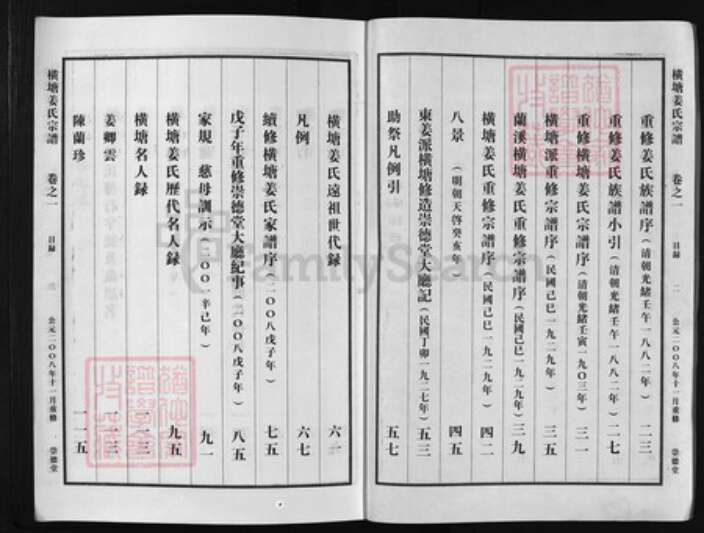 橫塘姜氏宗譜 卷之一 目録 二 公元二〇〇八年十一月重修 崇德堂
重修姜氏族譜序(清朝光緒壬午一八八二年) 二三
重修姜氏族譜小引(清朝光緒壬午一八八二年) 二七
重修橫塘姜氏宗譜序(清朝光緒壬寅一九〇三年) 三一
橫塘派重修宗譜序(民國己巳一九二九年) 三五
蘭溪橫塘姜氏重修宗譜序(民國己巳一九二九年) 三九
橫塘姜氏重修宗譜序(民國己巳一九二九年) 四二
八景(明朝天啓癸亥年) 四五
東姜派橫塘修造崇德堂大廳記(民國丁卯一九二七年) 五三
助祭凡例引 五七
橫塘姜氏遠祖世代録 六一
凡例 六七
續修橫塘姜氏家譜序(二〇〇八戊子年) 七五
戊子年重修崇德堂大廳紀事(二〇〇八戊子年) 八五
家規 慈母訓示(二〇〇一辛己年) 九一
橫塘姜氏歷代名人録 九五
橫塘名人録 一二三
姜卿雲 一二三
陳蘭珍 一二五
橫塘姜氏宗譜 卷之一 目録 公元二〇〇八年十一月重修 崇德堂
FamilySearch